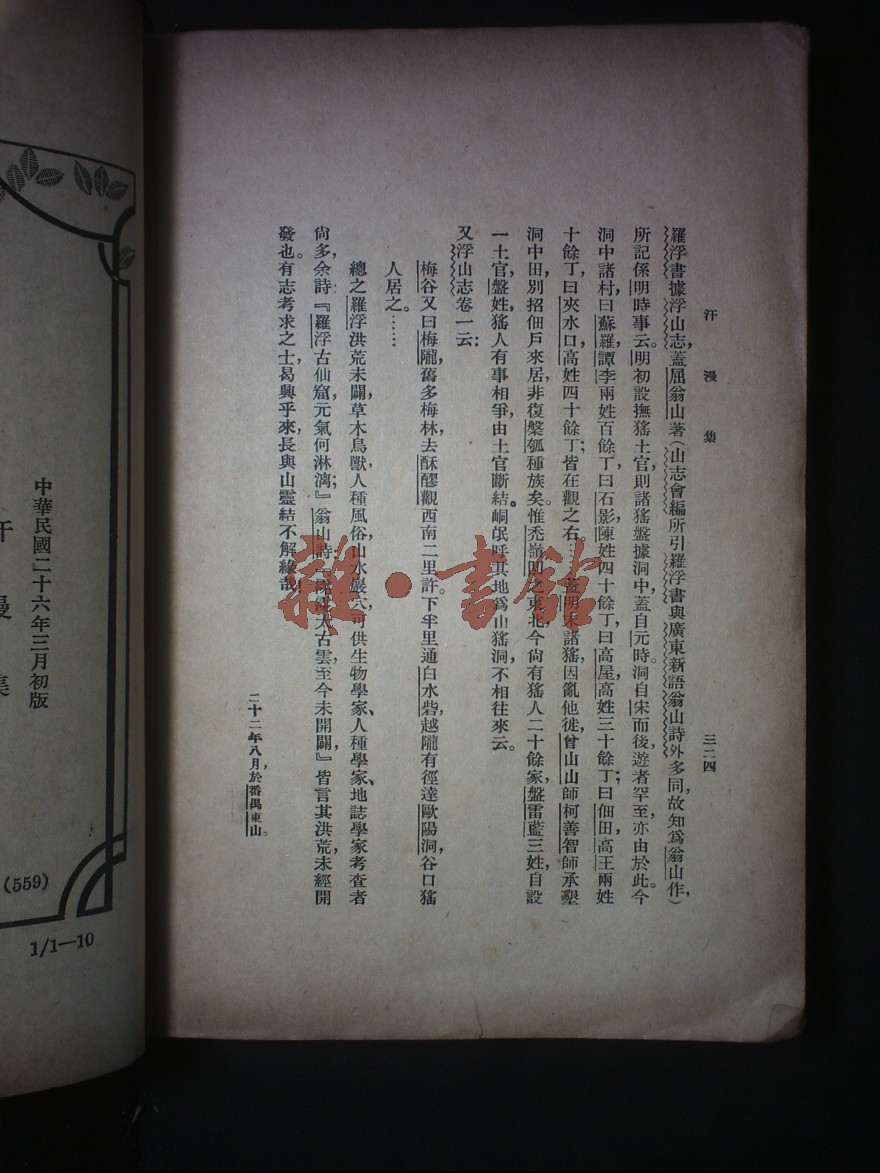 汗漫集
三二四
羅浮書據浮山志,蓋屈翁山著(山志會編所引羅浮書與廣東新語翁山詩外多同,故知爲翁山作)
所記係明時事云。明初設撫猺土官,則諸猺盤據洞中,蓋自元時。洞自宋而後,遊者罕至,亦由於此。今
洞中諸村,曰蘇羅,譚李兩姓百餘丁,曰石影,陳姓四十餘丁,曰高屋,高姓三十餘丁;曰佃田,高王兩姓
十餘丁,曰夾水口,高姓四十餘丁;皆在觀之右。…蓋明末諸猺,因亂他徙,曾山山師柯善智師承墾
洞中田,別招佃戶來居,非復槃瓠種族矣。惟禿嶺凹之東北,今尙有猺人二十餘家,盤雷藍三姓,自設
一土官,盤姓,猺人有事相爭,由土官斷結。峒氓呼其地爲山猺洞,不相往來云。
又浮山志卷一云:
梅谷又曰梅隴,舊多梅林,去酥醪觀西南二里許。下半里通白水砦,越隴有徑達歐陽洞,谷口猺
人居之。……
總之羅浮洪荒未闢,草木鳥獸,人種風俗,山水巖穴,可供生物學家、人種學家、地誌學家考查者
尙多,余詩:『羅浮古仙窟,元氣何淋漓;』翁山詩:太古雲,至今未開闢』皆言其洪荒未經開
發也。有志考求之士,曷興乎來,長與山靈結不解緣哉!
二十二年八月,於番禺東山。
中華民國二十六年三月初版
汗漫集
(559)
1/1—10
雜·書館